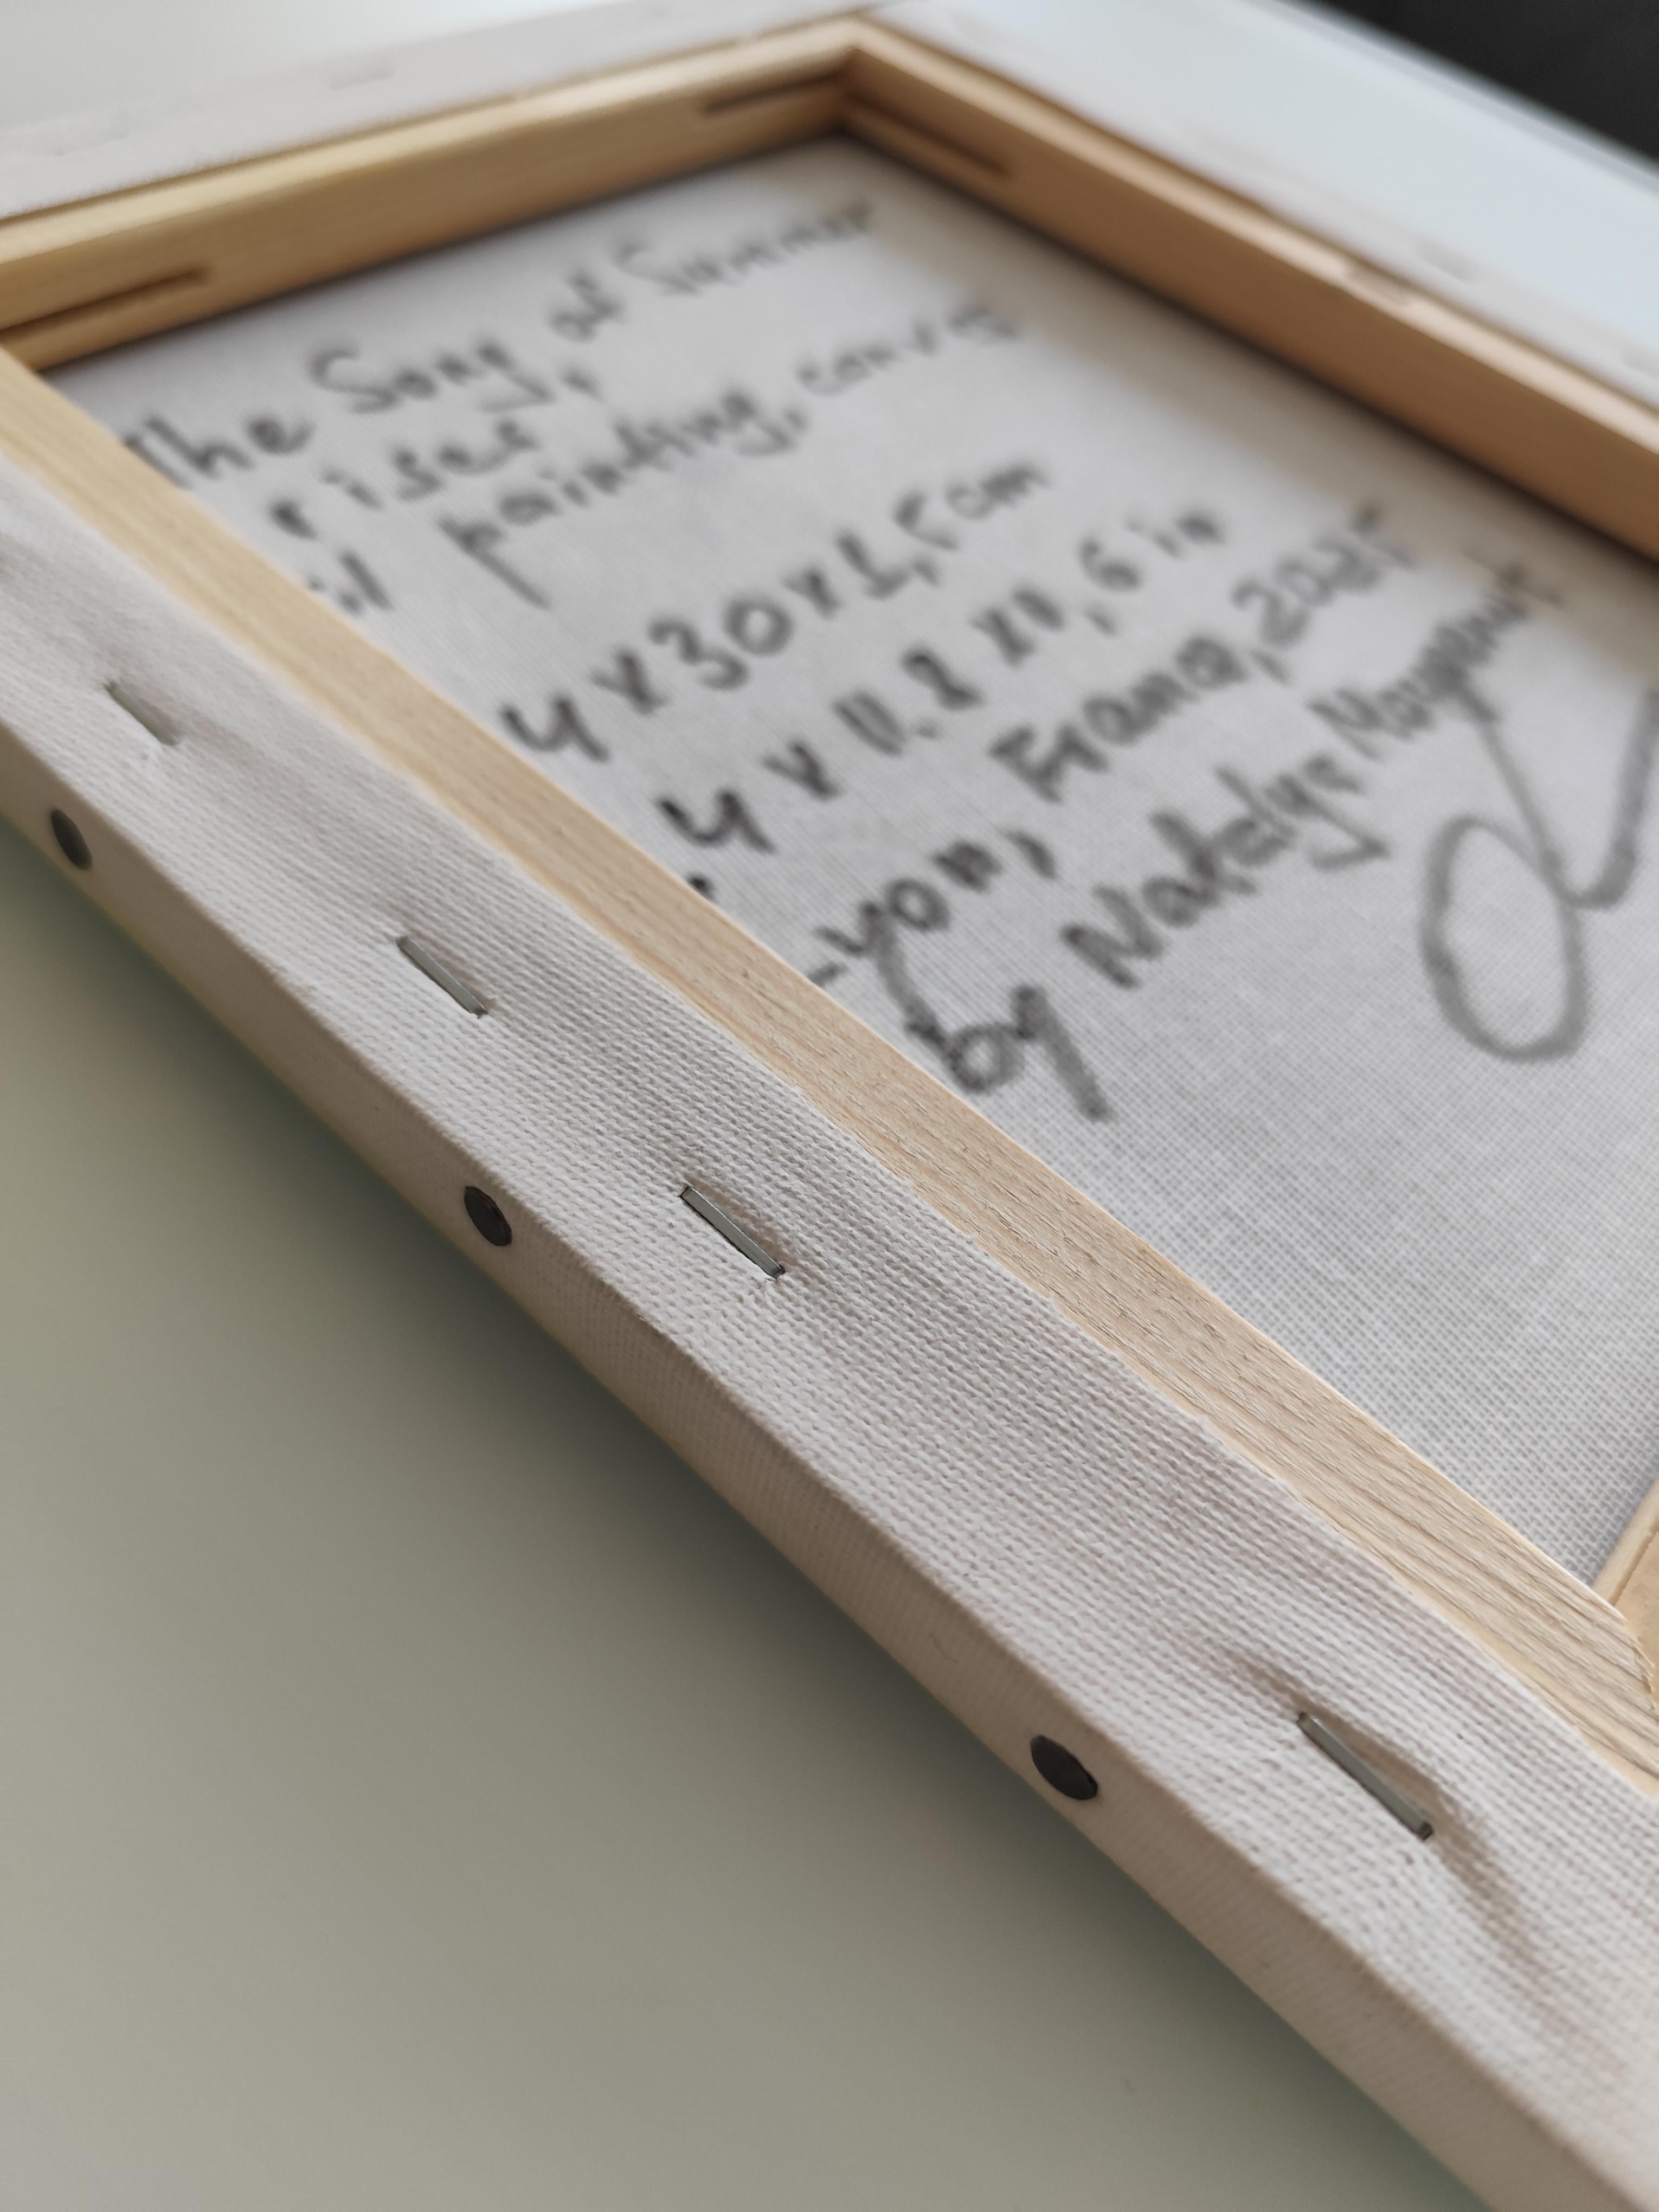 The Song of Summer
rises,
oil painting, canvas
4 x 30 x 1,5 cm
4 x 11.8 x 0,6 in
Lyon, France, 2025
by Natalya